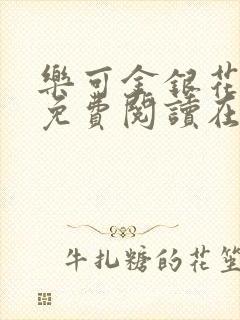 樂可金銀花
免費閱讀在
牛扎糖的花笙